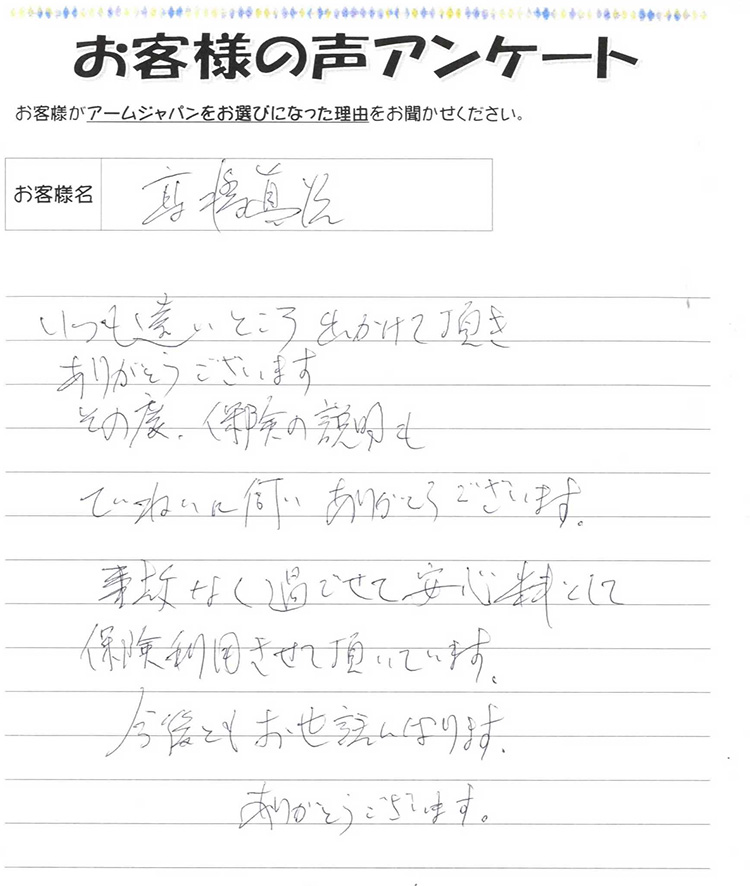 お客様の声アンケート
お客様がアームジャパンをお選びになった理由をお聞かせください。
お客様名
髙橋真
いつも遠いところ出かけて頂き
ありがとうございます
その度、保険の説明も
ていねいに伺い ありがとうございます。
事故なく過ごせて安心料として
保険利用させて頂いています。
今後ともお世話になります。
ありがとうございます。